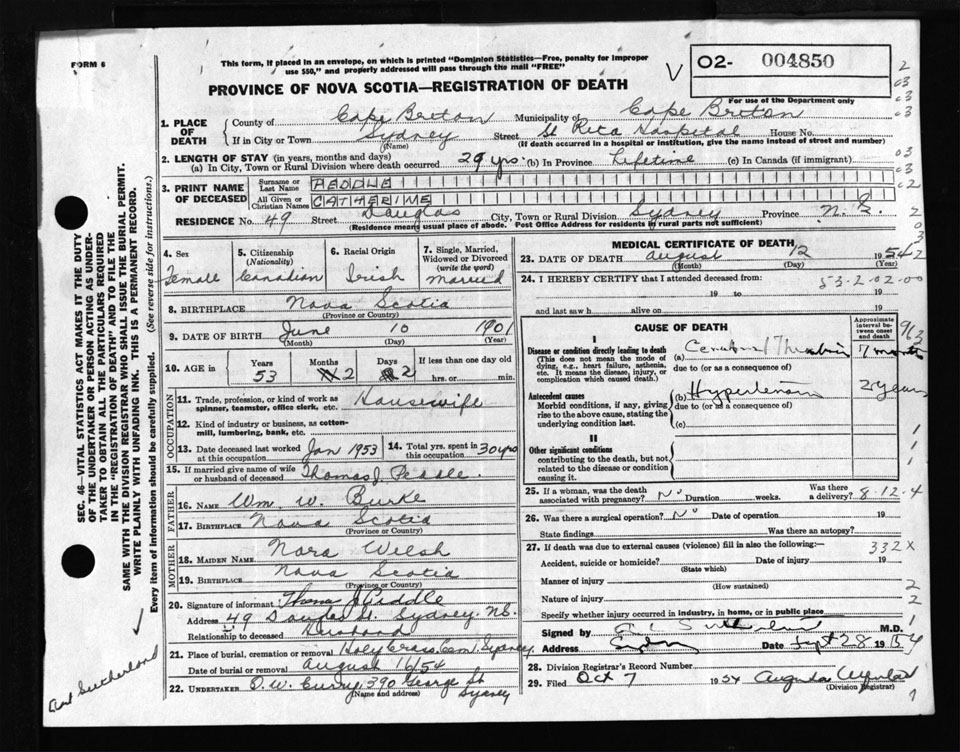 FORM 6
This form, if placed in an envelope, on which is printed "Dominion Statistics—Free, penalty for improper
use $50," and properly addressed will pass through the mail "FREE"
V
O2- 004850
For use of the Department only
PROVINCE OF NOVA SCOTIA—REGISTRATION OF DEATH
1. PLACE OF DEATH
County of Cape Breton Municipality of Cape Breton
If in City or Town Sydney Street St Rita Hospital House No.
(Name) (If death occurred in a hospital or institution, give the name instead of street and number)
2. LENGTH OF STAY (in years, months and days)
(a) In City, Town or Rural Division where death occurred 29 yrs. (b) In Province Lifetime (c) In Canada (if immigrant)
3. PRINT NAME OF DECEASED
Surname or Last Name PEDDLE
All Given or Christian Names CATHERINE
RESIDENCE No. 49 Street Douglas City, Town or Rural Division Sydney Province N. S.
(Residence means usual place of abode. Post Office Address for residents in rural parts not sufficient)
4. Sex Female
5. Citizenship (Nationality) Canadian
6. Racial Origin Irish
7. Single, Married, Widowed or Divorced (write the word) Married
8. BIRTHPLACE Nova Scotia
(Province or Country)
9. DATE OF BIRTH June 10 1901
(Month) (Day) (Year)
10. AGE in Years 53 Months 2 Days 2 If less than one day old
hrs. or min.
OCCUPATION
11. Trade, profession, or kind of work as spinner, teamster, office clerk, etc. Housewife
12. Kind of industry or business, as cotton-mill, lumbering, bank, etc.
13. Date deceased last worked at this occupation Jan 1953 14. Total yrs. spent in this occupation 30 yrs
15. If married give name of wife or husband of deceased Thomas J. Peddle.
FATHER
16. NAME Wm. W. Burke
17. BIRTHPLACE Nova Scotia
(Province or Country)
MOTHER
18. MAIDEN NAME Nora Welsh
19. BIRTHPLACE Nova Scotia
(Province or Country)
20. Signature of informant Thomas J Peddle
Address 49 Douglas St. Sydney. NS.
Relationship to deceased Husband
21. Place of burial, cremation or removal Holy Cross Cem. Sydney
Date of burial or removal August 16/54
22. UNDERTAKER D. W. Curry, 390 George St
Sydney
(Name and address)
MEDICAL CERTIFICATE OF DEATH
23. DATE OF DEATH August 12 1954
(Month) (Day) (Year)
24. I HEREBY CERTIFY that I attended deceased from:
19 to 19
and last saw h alive on 19
53-2.02.00
CAUSE OF DEATH
Approximate interval between onset and death
I
Disease or condition directly leading to death
(This does not mean the mode of dying, e.g., heart failure, asthenia, etc. It means the disease, injury, or complication which caused death.)
(a) Cerebral Thrombosis 7 months
due to (or as a consequence of)
Antecedent causes
Morbid conditions, if any, giving rise to the above cause, stating the underlying condition last.
(b) Hypertension 2 years
due to (or as a consequence of)
(c)
II
Other significant conditions
contributing to the death, but not related to the disease or condition causing it.
25. If a woman, was the death associated with pregnancy? No Duration weeks. Was there a delivery? 8.12.4
26. Was there a surgical operation? No Date of operation 19
State findings Was there an autopsy?
27. If death was due to external causes (violence) fill in also the following:—
332X
Accident, suicide or homicide? Date of injury 19
(State which)
Manner of injury
(How sustained)
Nature of injury
Specify whether injury occurred in industry, in home, or in public place
Signed by Sutherland M.D.
Address Sydney Date Sept 28 1954
28. Division Registrar's Record Number
29. Filed Oct 7 1954
(Division Registrar)
SEC. 46—VITAL STATISTICS ACT MAKES IT THE DUTY
OF THE UNDERTAKER OR PERSON ACTING AS UNDER-
TAKER TO OBTAIN ALL THE PARTICULARS REQUIRED
IN THE "REGISTRATION OF DEATH" AND TO FILE THE
SAME WITH THE DIVISION REGISTRAR WHO SHALL ISSUE THE BURIAL PERMIT.
WRITE PLAINLY WITH UNFADING INK. THIS IS A PERMANENT RECORD.
Every item of information should be carefully supplied. (See reverse side for instructions.)
Sutherland